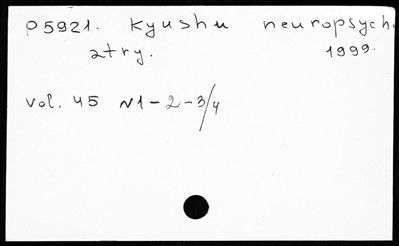 P5921. Kyushu neuropsychi
atry. 1999.
vol. 45 N1-2-3/4